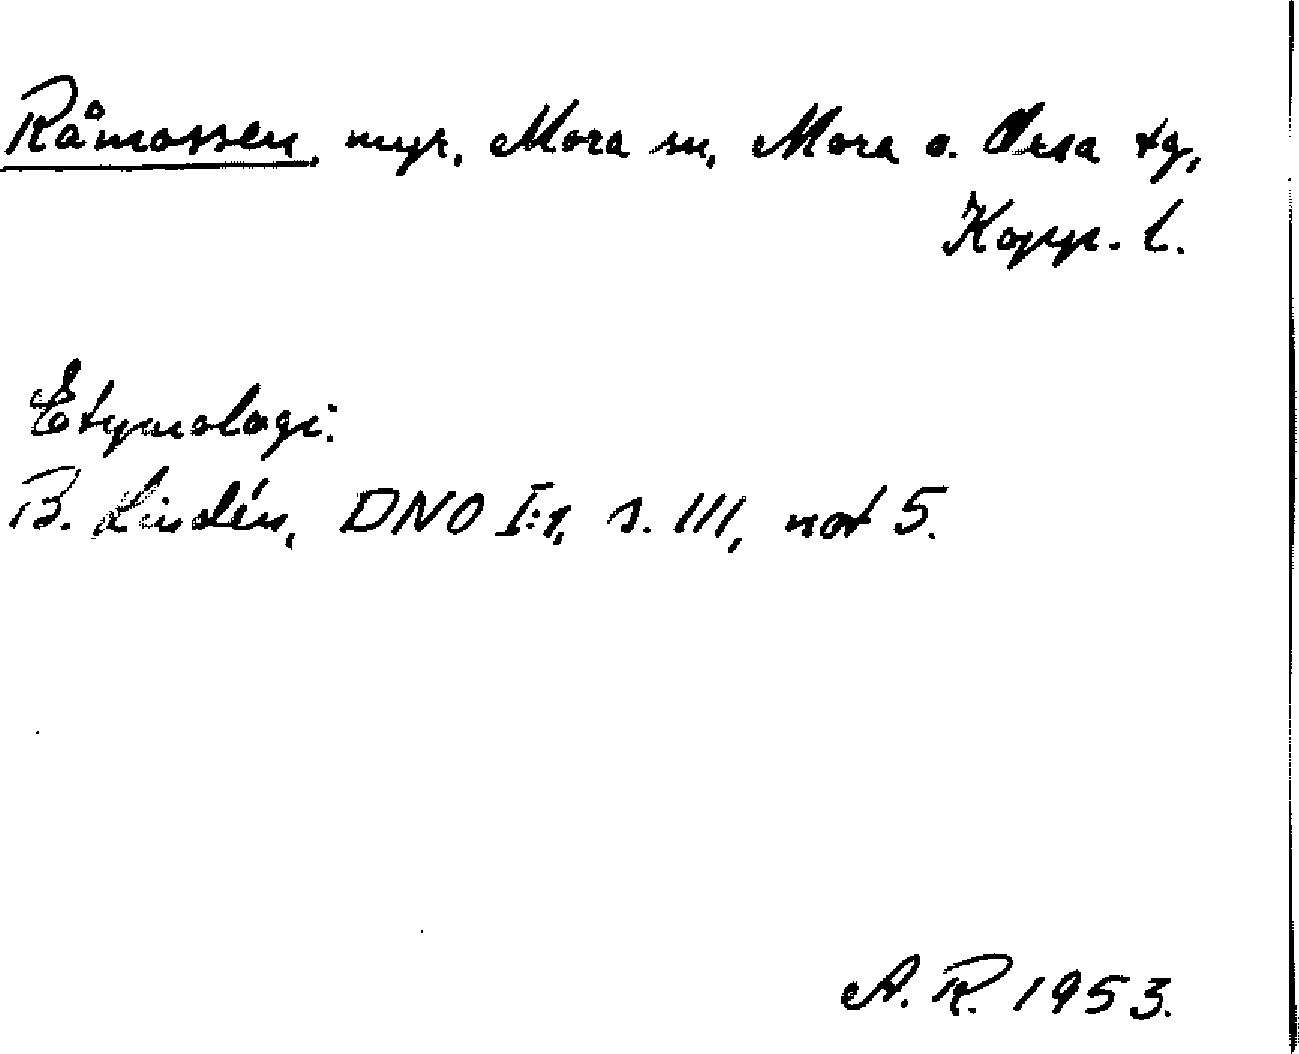 Råmossen, myr, Mora sn, Mora o. Orsa tg,
Kopp. l.
Etymologi:
B. Lindén, DNO I:1, s. 111, not 5.
A. R. 1953.